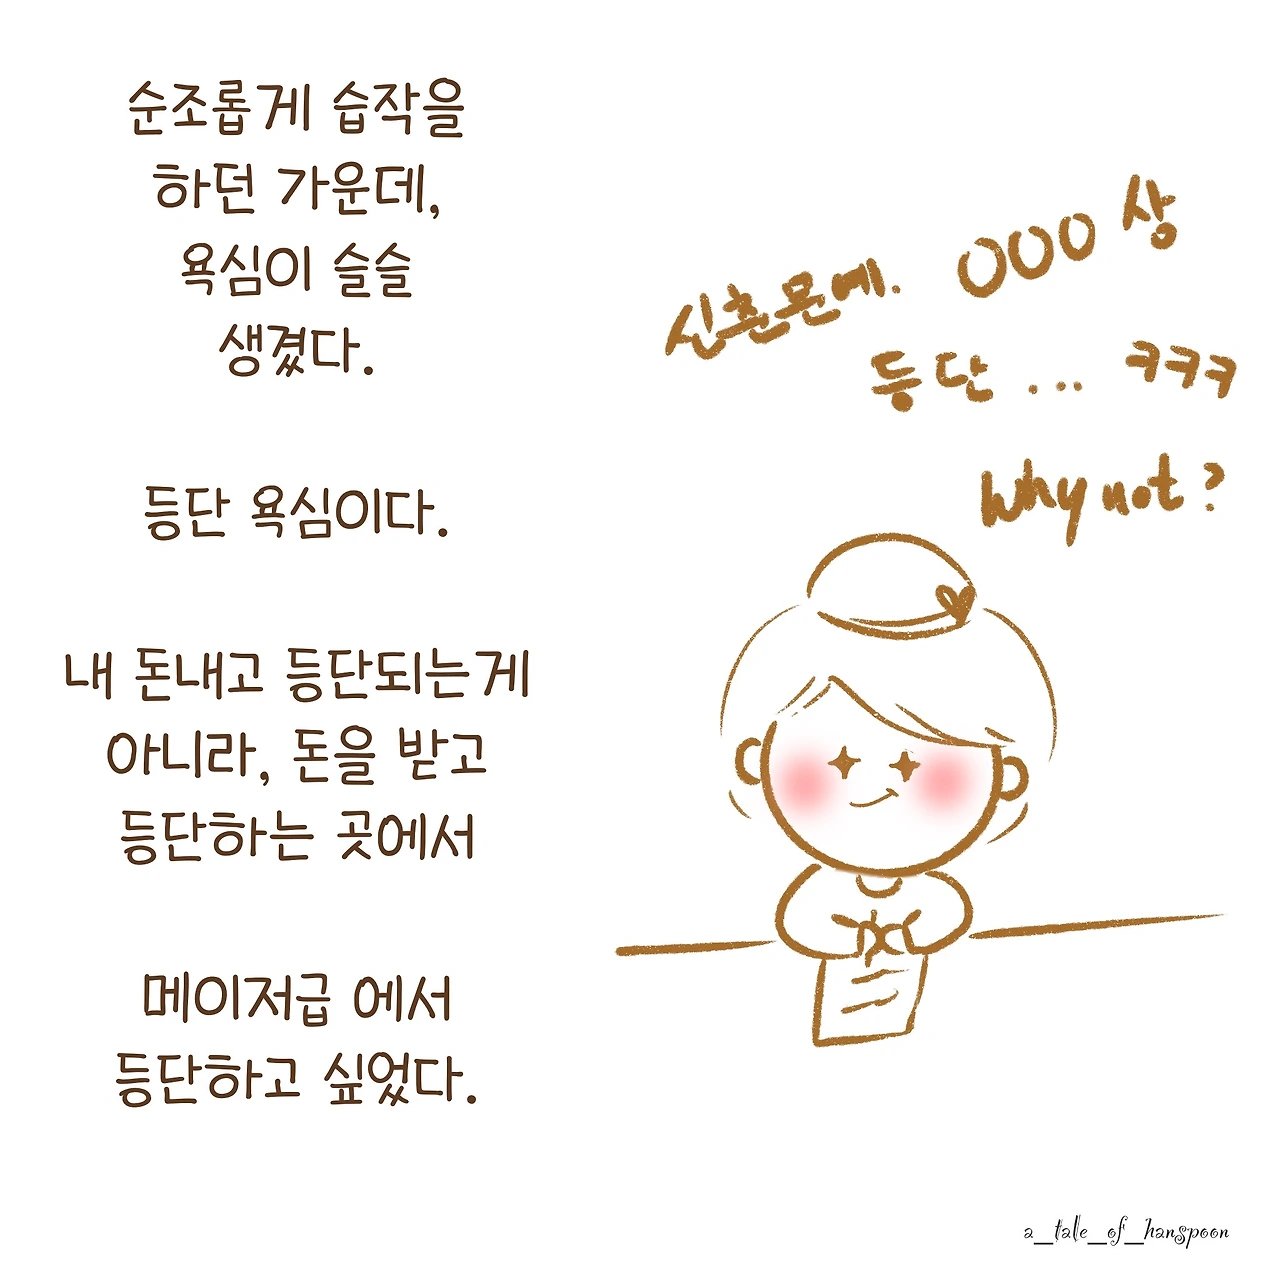 순조롭게 습작을
하던 가운데,
욕심이 슬슬
생겼다.
등단 욕심이다.
내 돈내고 등단되는게
아니라, 돈을 받고
등단하는 곳에서
메이저급 에서
등단하고 싶었다.
신춘문예. OOO 상
등단... ㅋㅋㅋ
Why not?
a_tale_of_hanspoon